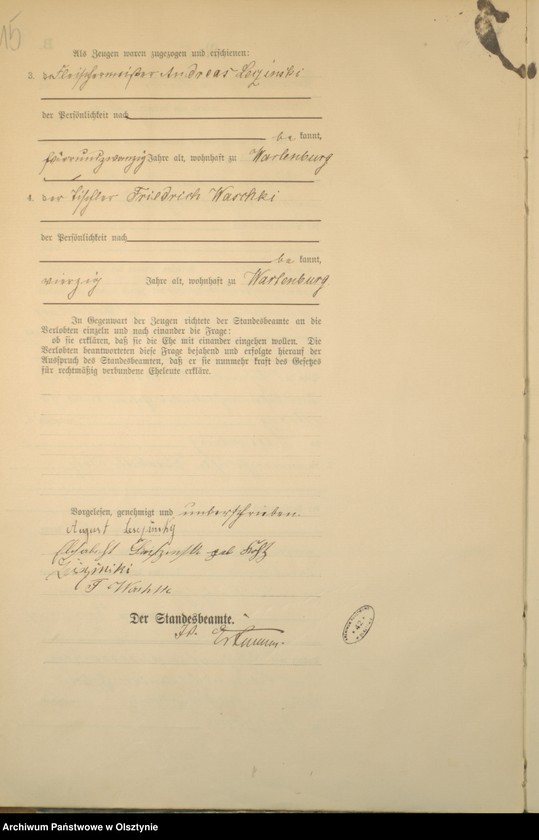 15
Als Zeugen waren zugezogen und erschienen:
3. der Fleischermeister Andreas Lezinski
der Persönlichkeit nach
be kannt,
fünfundzwanzig Jahre alt, wohnhaft zu Wartenburg
4. der Tischler Friedrich Waschki
der Persönlichkeit nach
be kannt,
vierzig Jahre alt, wohnhaft zu Wartenburg
In Gegenwart der Zeugen richtete der Standesbeamte an die
Verlobten einzeln und nach einander die Frage:
ob sie erklären, daß sie die Ehe mit einander eingehen wollen. Die
Verlobten beantworteten diese Frage bejahend und erfolgte hierauf der
Ausspruch des Standesbeamten, daß er sie nunmehr kraft des Gesetzes
für rechtmäßig verbundene Eheleute erkläre.
Vorgelesen, genehmigt und unterschrieben
August
geb
F
Der Standesbeamte.
Archiwum Państwowe w Olsztynie